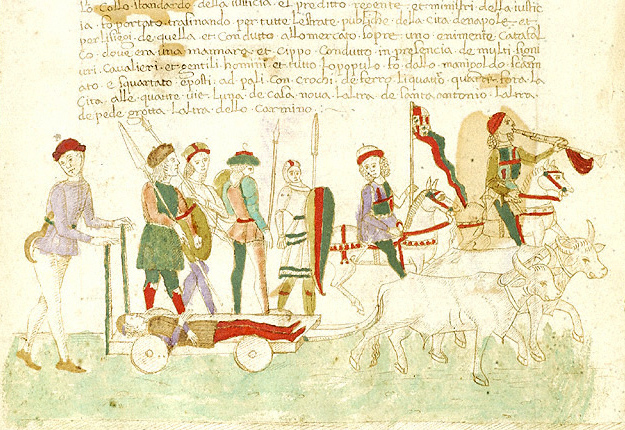 lo Collo stendardo della iusticia. el preditto regente. et ministri della iustic
ia. fo portato. trasinando. per tutte le strate. publiche. della cita de napole. et.
per li siegi. de quella. et Condutto. allo mercato. sopre. uno. eminente. Catafal
Co. dove era una mannara. et Cippo. Condutto. in presencia. de multi signi
uri. Cavalieri. et gentili homini. et tutto. lo popolo. fo dallo manipoldo. scann
ato. e squartato. e posti. ad pali. con Crochi. de ferro. li quatto. quarti. fora. la
Cita. alle quatto. vie. luna. de Casa nova. laltra. de santa antonio. laltra.
de pede grotta. laltra. dello Carmino.